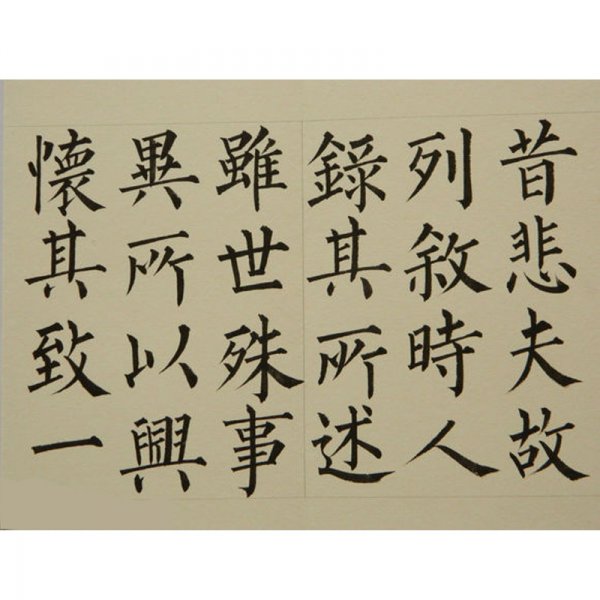 昔悲夫故
列敘時人
錄其所述
雖世殊事
異所以興
懷其致一